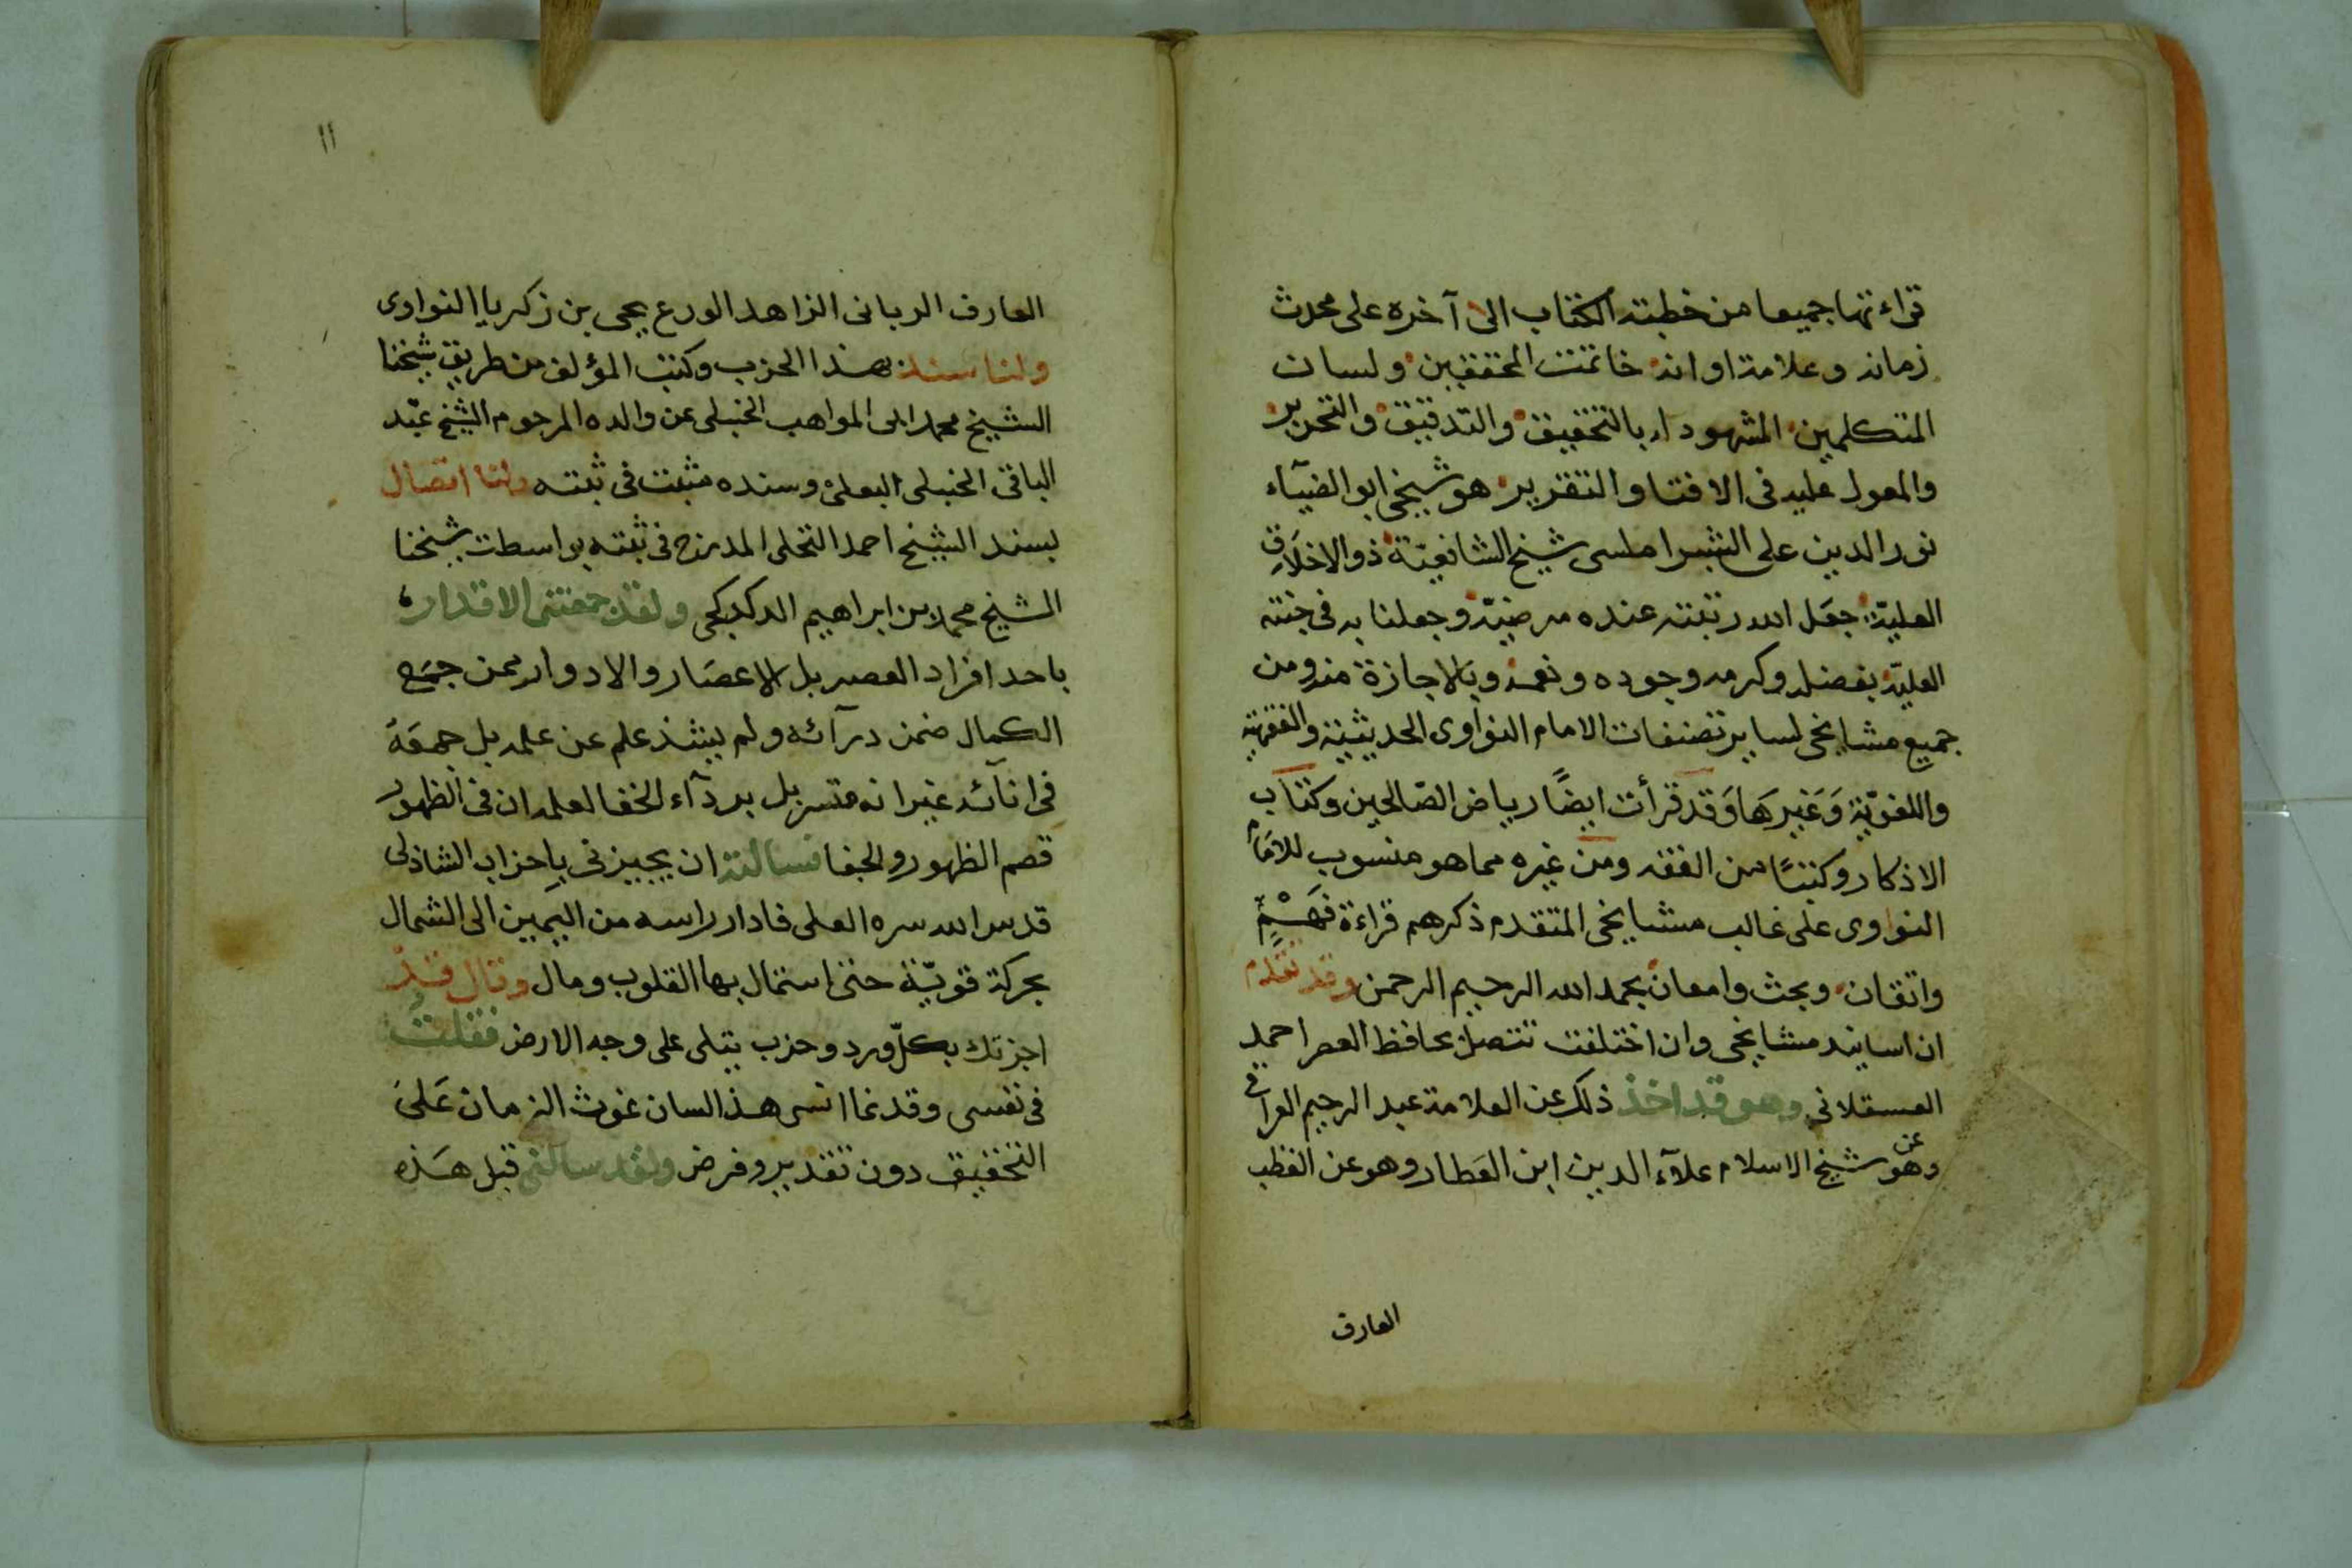 قراءتها جميعا من خطبته الكتاب الى آخره على محدث
زمانه وعلامة اوانه خاتمت المحققين ولسان
المتكلمين المشهود له بالتحقيق والتدقيق والتحرير
والمعول عليه فى الافتا والتقرير هو شيخى ابو الضيآء
نور الدين على الشبراملسى شيخ الشافعيّة ذو الاخلاق
العليّة جعل الله رتبته عنده مرضيّة وجعلنا به فى جنته
العليّة بفضله وكرمه وجوده ونعمه وبالاجازة منه ومن
جميع مشايخى لساير تصنفات الامام النواوى الحديثية والفقهية
واللغويّة وَغيرهَا وَقد قرأت ايضًا رياض الصّالحين وكتاب
الاذكار وكتبًا من الفقه ومن غيره مما هو منسوب للامَام
النواوى على غالب مشايخى المتقدم ذكرهم قراءة فهْمٍ
واتقان وبحث وامعان بحمد الله الرحيم الرحمن وقد تقدم
ان اسانيد مشايخى وان اختلفت تتصل بحافظ العصر احمد
العسقلانى وهو قد اخذ ذلك عن العلامة عبد الرحيم العراقى
وهو عن شيخ الاسلام علآء الدين ابن العَطار وهو عن القطب
العارف
١١
العارف الربانى الزاهد الورع يحيى بن زكريا النواوى
ولنا سند بهذا الحزب وكتب المؤلف من طريق شيخنا
الشيخ محمد ابى المواهب الحنبلى عن والده المرحوم الشيخ عبْد
الباقى الحنبلى البعلى وسنده مثبت فى ثبته ولنا اتصال
بسند الشيخ احمد النخلى المدرج فى ثبته بواسطت شيخنا
الشيخ محمد بن ابراهيم الدكدكجى ولقد جمعتنى الاقدار
باحد افراد العصر بل الاعصَار والادوار ممن جمَع
الكمال ضمن درآئه ولم يشذ علم عن علمه بل جمعَهُ
فى انآئه غير انه متسربل بردآء الخفا لعلمه ان فى الظهور
قصم الظهور والجفا فسالته ان يجيزنى باحزاب الشاذلى
قدس الله سره العلى فادار راسه من اليمين الى الشمال
بحركة قويّة حتى استمال بها القلوب ومال وقال قد
اجزتك بكلّ ورد وحزب يتلى على وجه الارض فقلت
فى نفسى وقد نما انسى هذا لسان غوث الزمان عَلىَ
التحقيق دون تقدير وفرض ولقد سالنى قبل هَذه